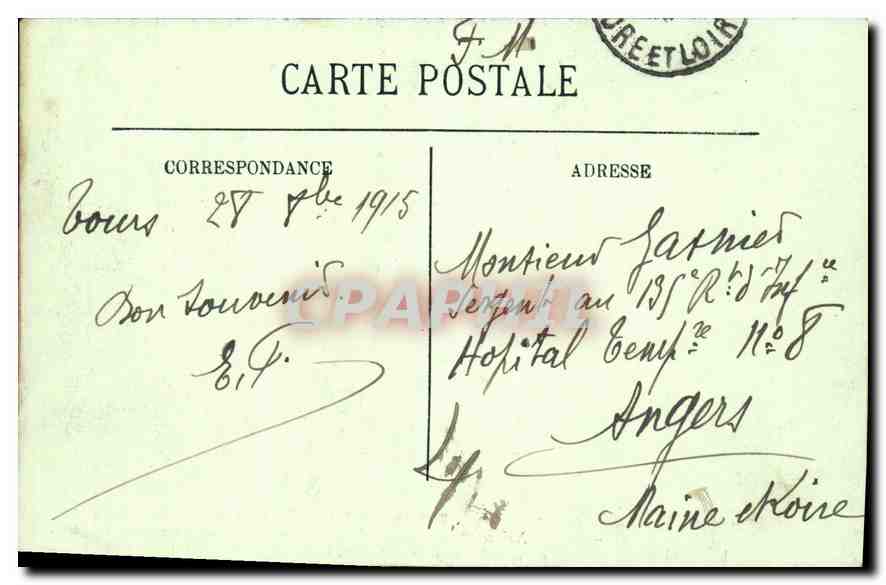 F M.
DRE ET LOIR
CARTE POSTALE
CORRESPONDANCE
ADRESSE
Tours 28 8bre 1915
Bon souvenir.
E, P.
Monsieur Garnier
Sergent au 135e Rt d'Infie
Hopital Tempre No 8
Angers
Maine et Loire
CPAPHIL